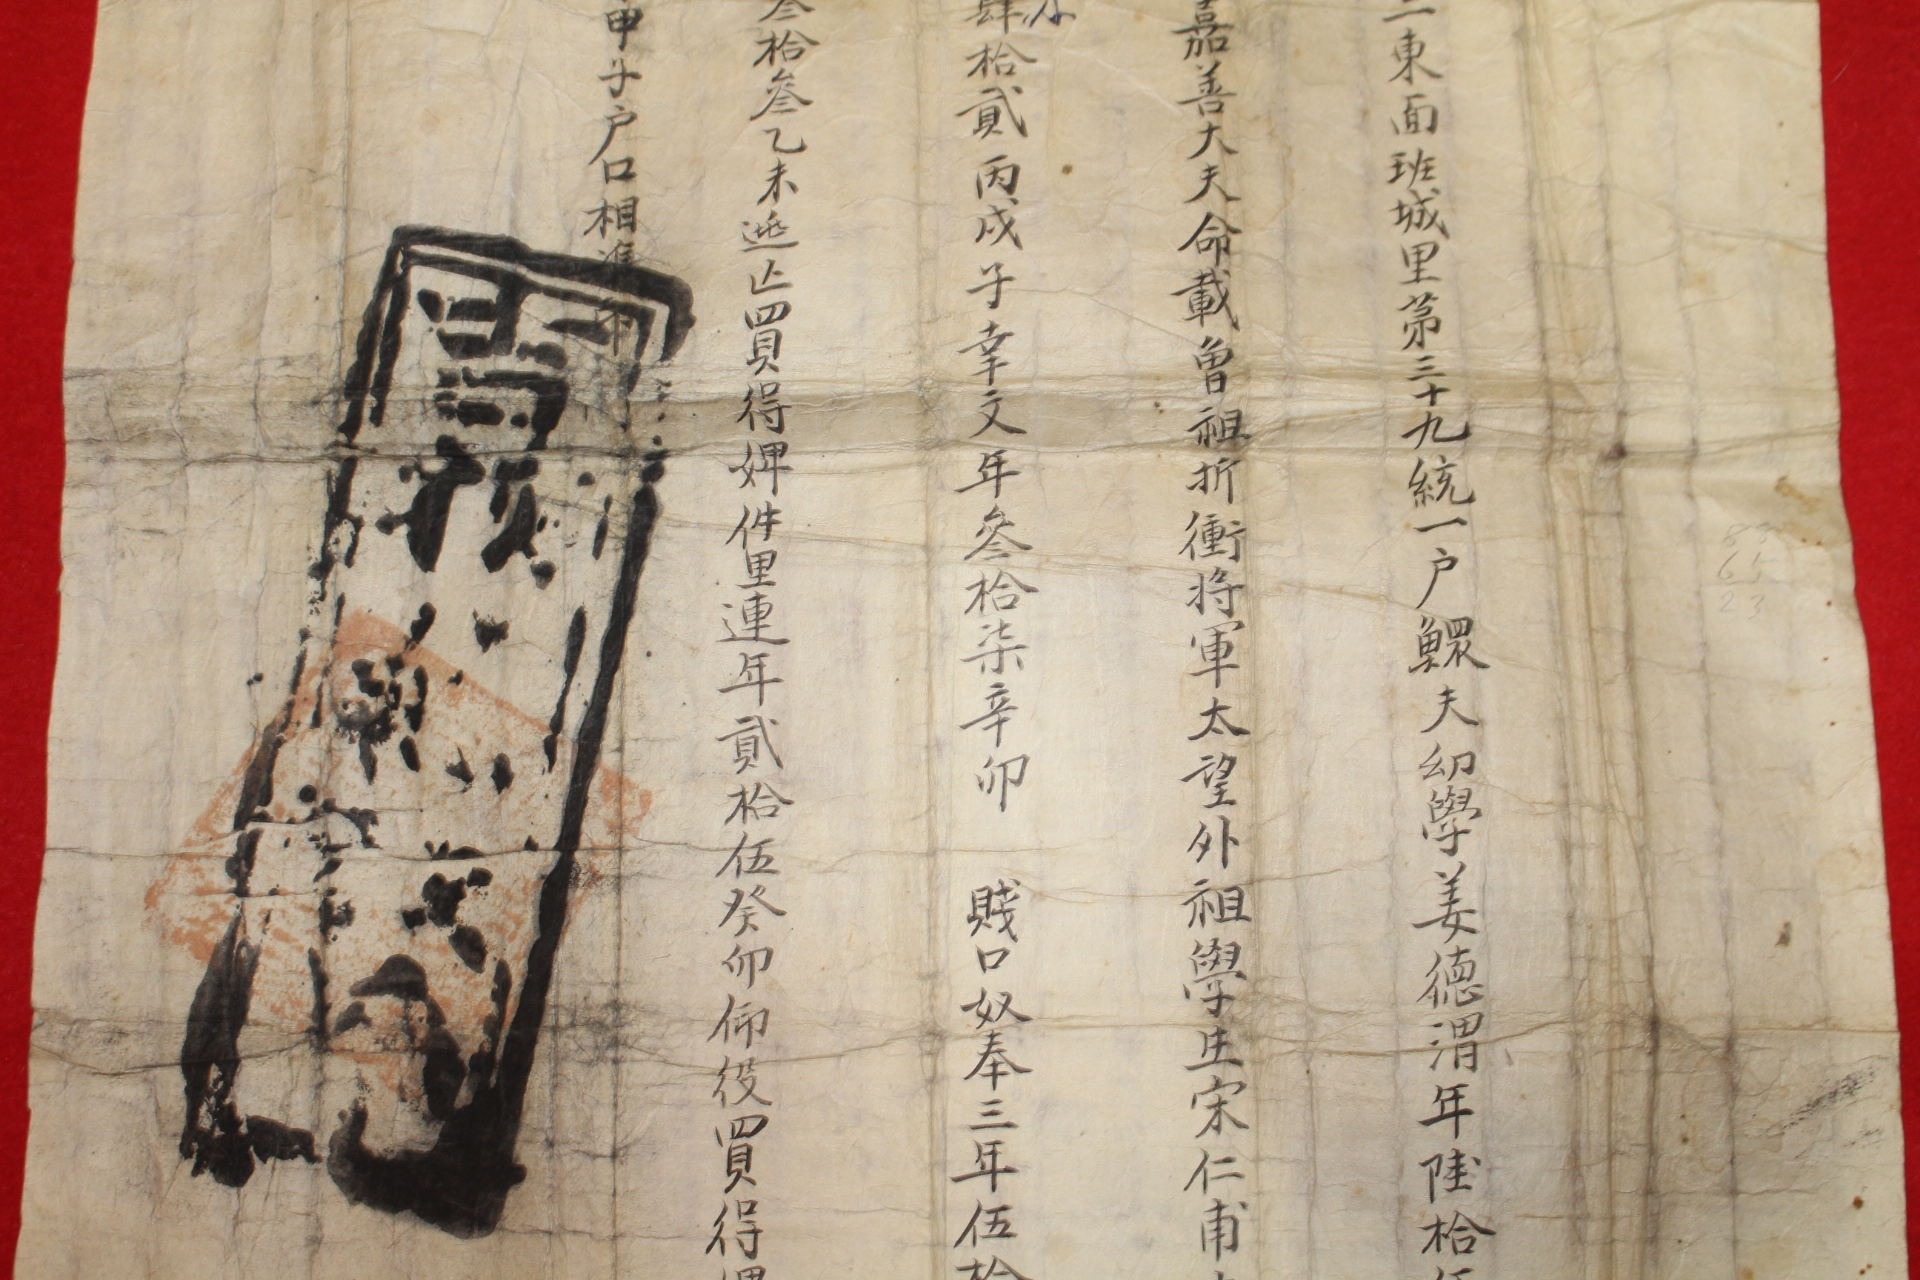 二東面班城里第三十九統一户鰥夫幼學姜德渭年陸拾
嘉善大夫命載曾祖折衝將軍太望外祖學生宋仁甫
肆拾貳丙戌子幸文年叄拾柒辛卯 賤口奴奉三年伍拾
叄拾叄乙未逃亡買得婢件里連年貳拾伍癸卯仰役買得婢
甲子户口相準